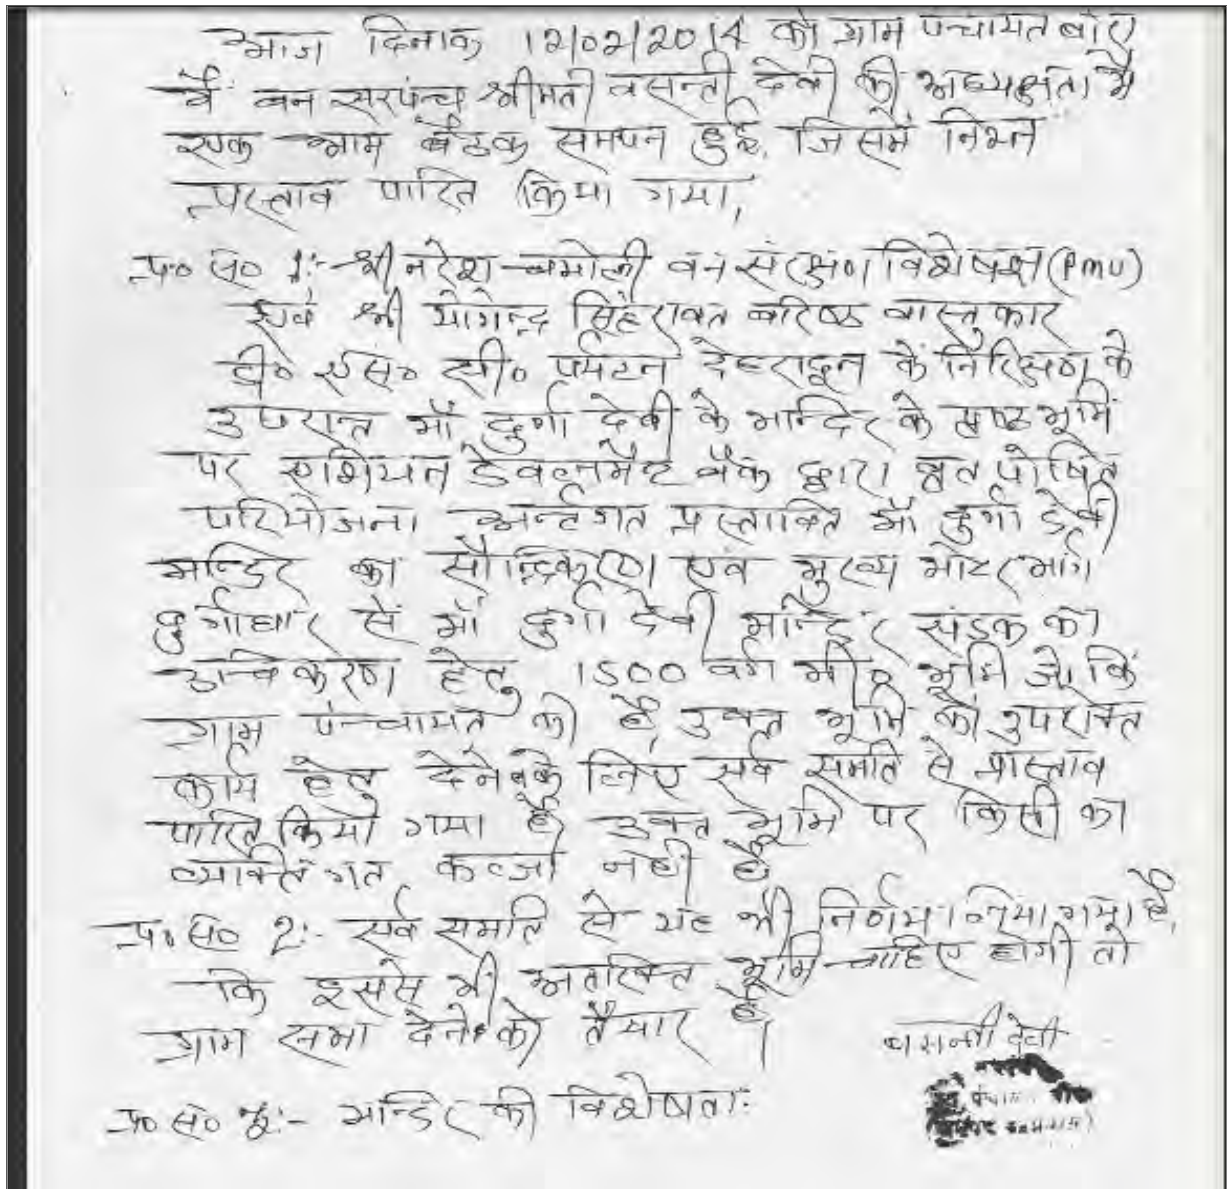 आज दिनाक 12/02/2014 को ग्राम पन्चायत
में वन सरपंन्च श्रीमती वसन्ती देवी की अध्यक्षता मे
एक आम बैठक समपन हुई, जिसमें निम्न
प्रस्ताव पारित किया गया,
प्र० स० 1:- श्री नरेश चमोली वन संरक्षण विशेषज्ञ (PMU)
एवं श्री योगेन्द्र सिंह रावत वरिष्ठ वास्तुकार
डी० एस० सी० पर्यटन देहरादून के निरिक्षण के
उपरान्त माँ दुर्गा देवी के मन्दिर के पृष्ठ भूमि
पर एशियन डेवलपमैन्ट बैंक द्वारा पोषित
परियोजना अर्न्तगत प्रस्तावित माँ दुर्गा देवी
मन्दिर का सौन्द्रिकरण एवं मुख्य मोटर मार्ग
दुर्गाधार से माँ दुर्गा देवी मन्दिर संडक का
हेतु 1500 वर्ग मी० भूमि जो कि
ग्राम पंन्चायत की है, उक्त भूमि को उपरोक्त
कार्य हेतु देने के लिए सर्व समति से प्रास्ताव
पारित किया गया है उक्त भूमि पर किसी का
व्यक्तिगत कब्जा नही है
प्र० स० 2:- सर्व समति से यह भी निर्णय लिया गया है,
कि इससे भी अतरिक्त भूमि चाहिए होगी तो
ग्राम सभा देने को तैयार है।
वसन्ती देवी
पंचा
प्र० स० 3:- मन्दिर की विशेषता: